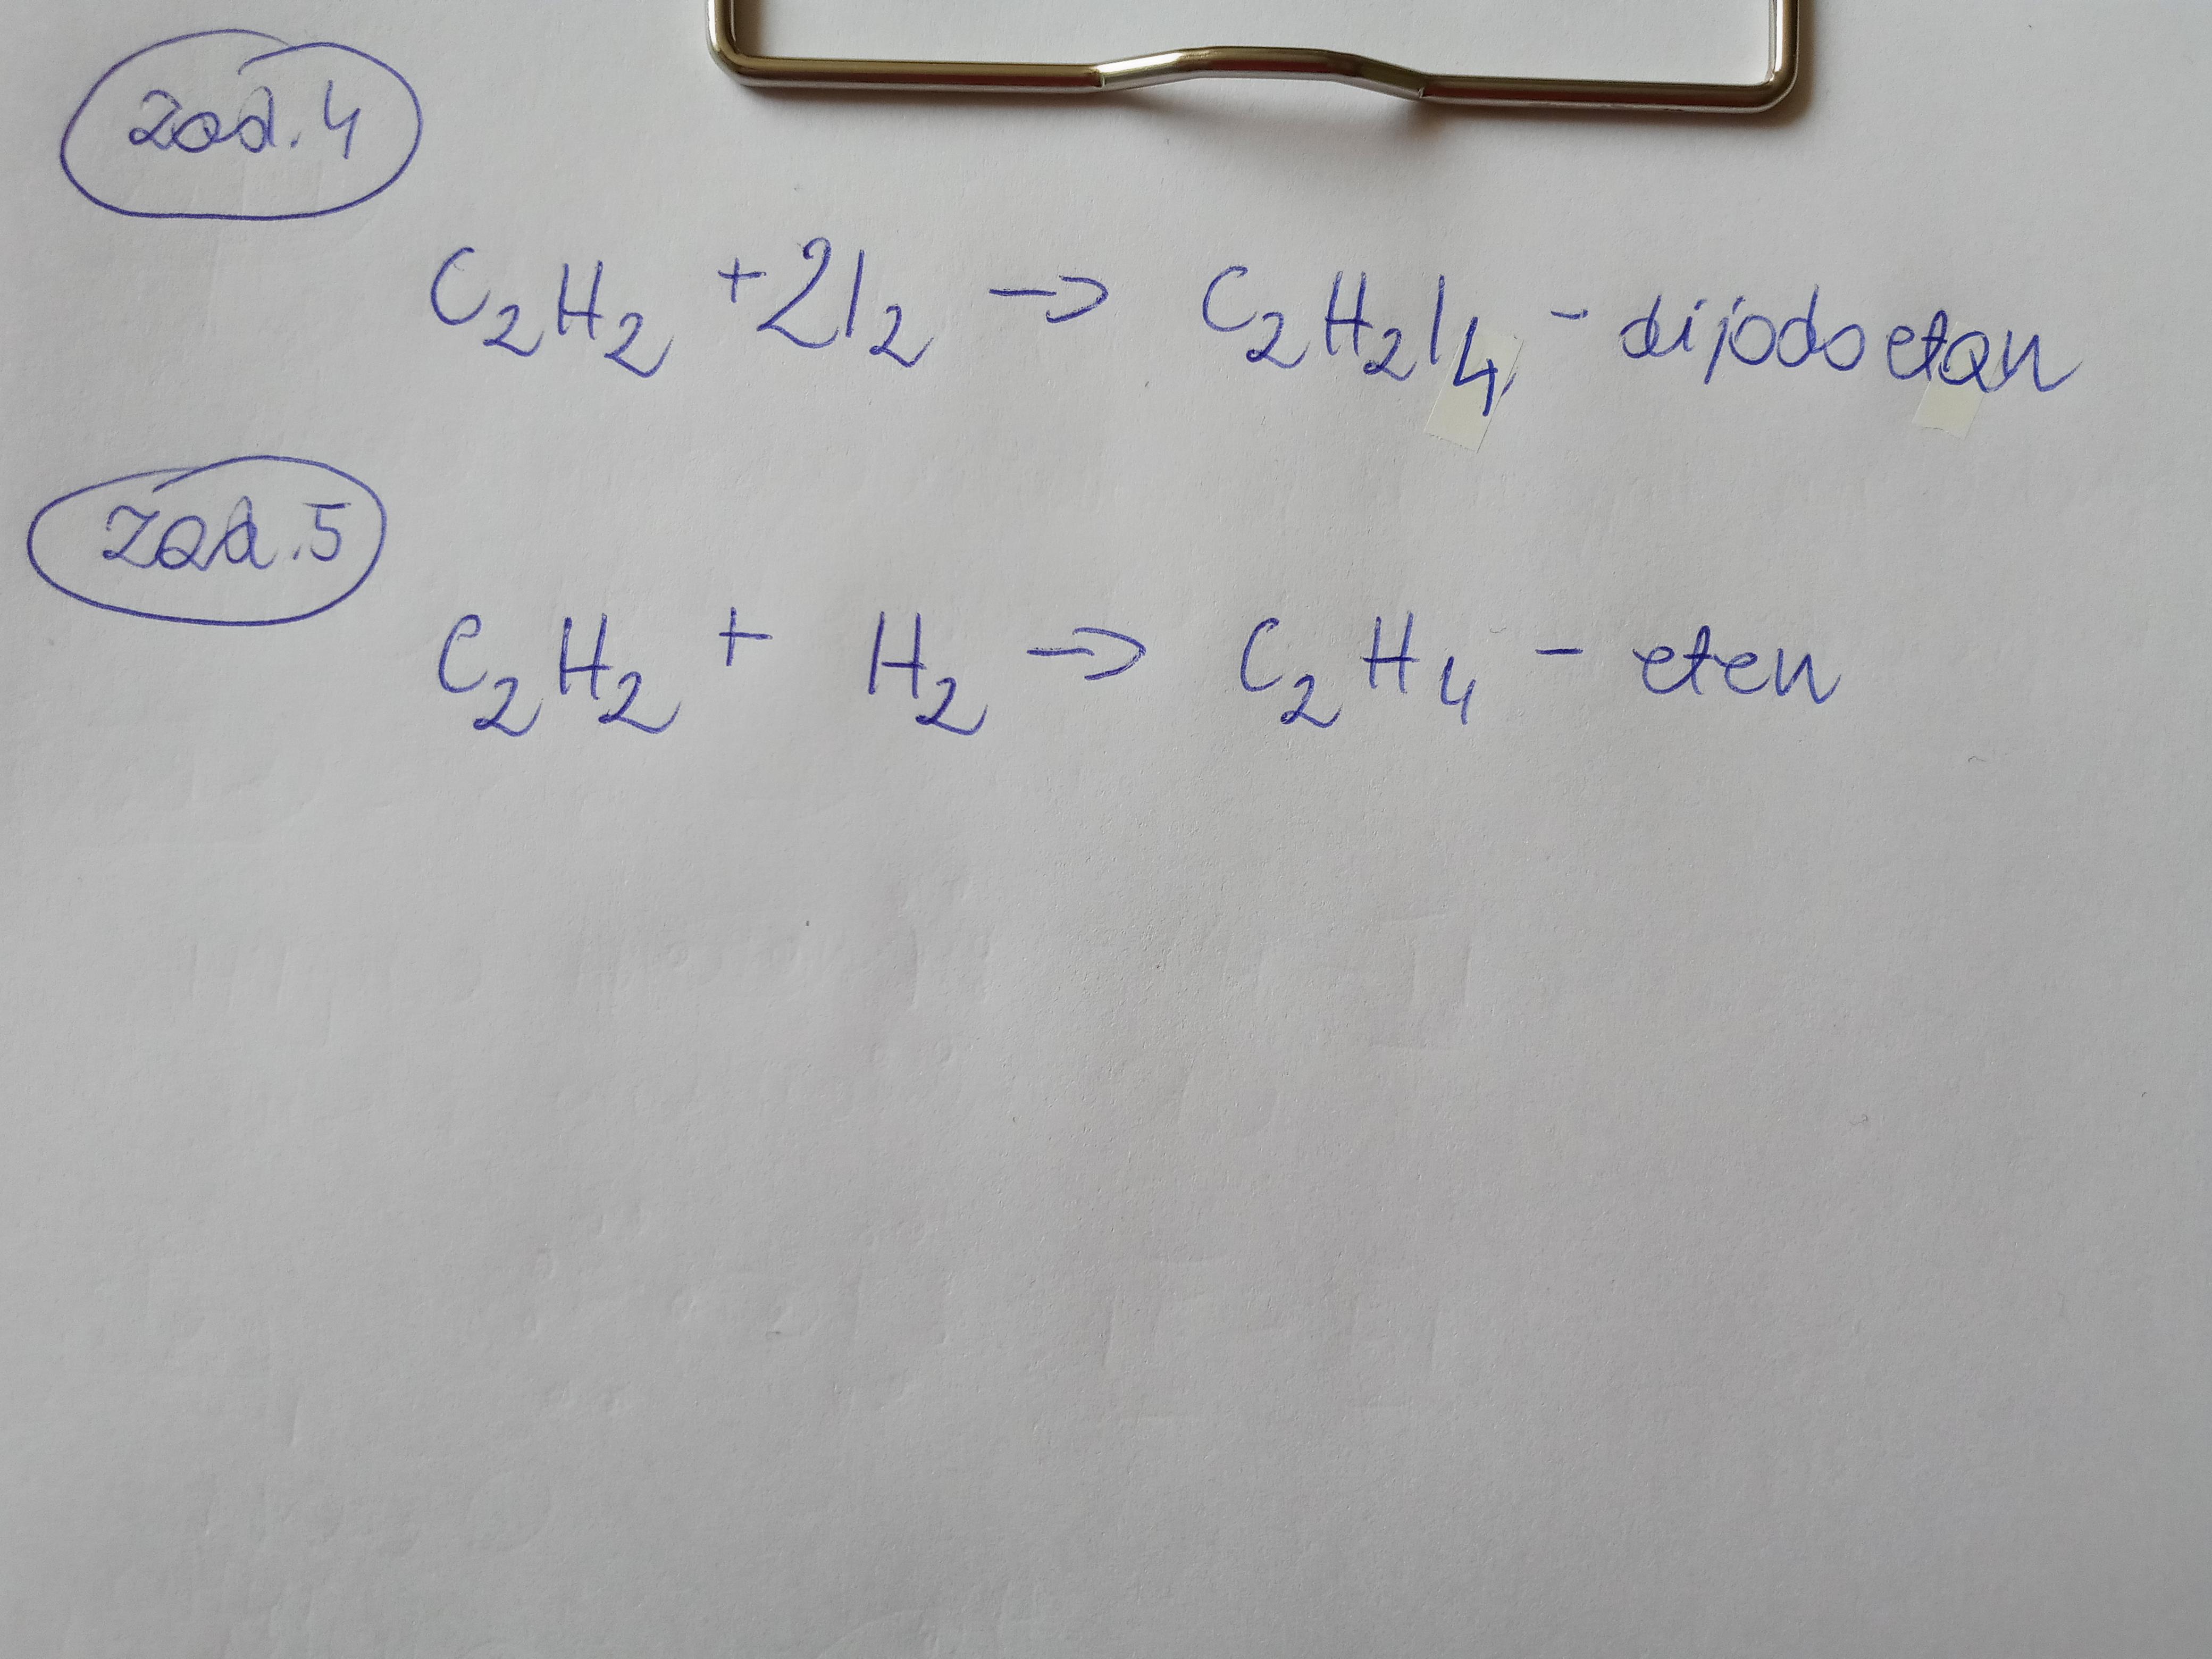 zad. 4
C₂H₂ + 2I₂ → C₂H₂I₄ - dijodoetan
Zad. 5
C₂H₂ + H₂ → C₂H₄ - eten